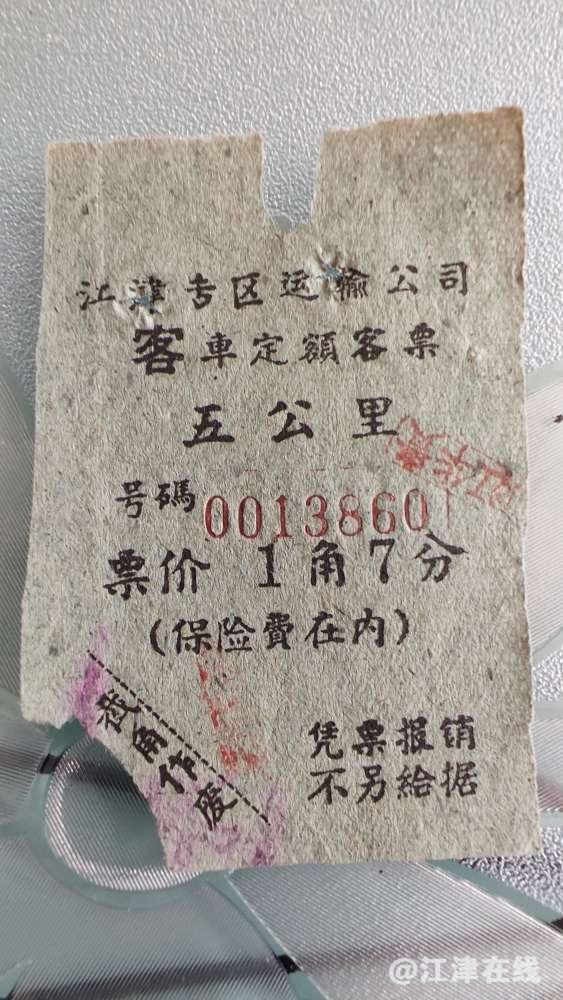 江津专区运输公司
客車定額客票
五公里
号碼 0013860
票价 1角7分
(保险費在内)
截角作废
凭票报销
不另給据
@江津在线